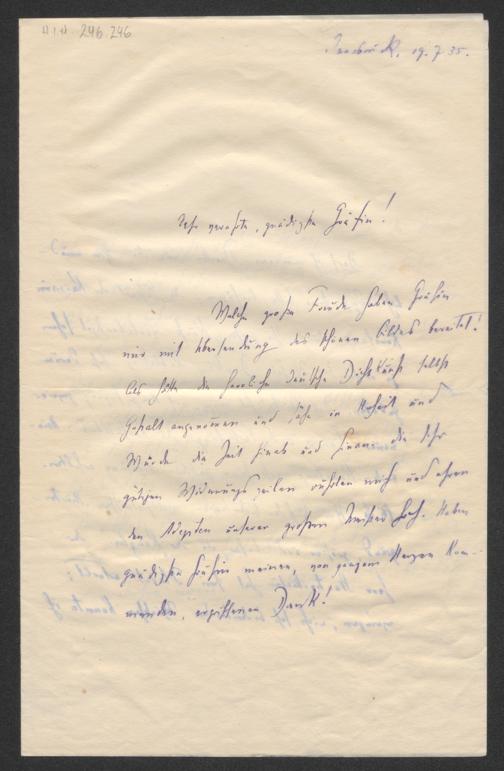 H.I.N. 246 246
Innsbruck, 19. 7. 35.
Sehr verehrte, gnädigste Gräfin!
Welche große Freude haben Gräfin
mir mit Übersendung des schönen Bildes bereitet!
Als hätte die herrliche deutsche Dichtkunst selbst
Gestalt angenommen und sähe in Hoheit und
Würde die Zeit hinab und hinan. die sehr
gütigen Widmungszeilen rührten mich und ehren
den Adepten unserer großen Meister hoch. Haben
gnädigste Gräfin meinen, von ganzem Herzen kom-
menden, ergriffenen Dank!